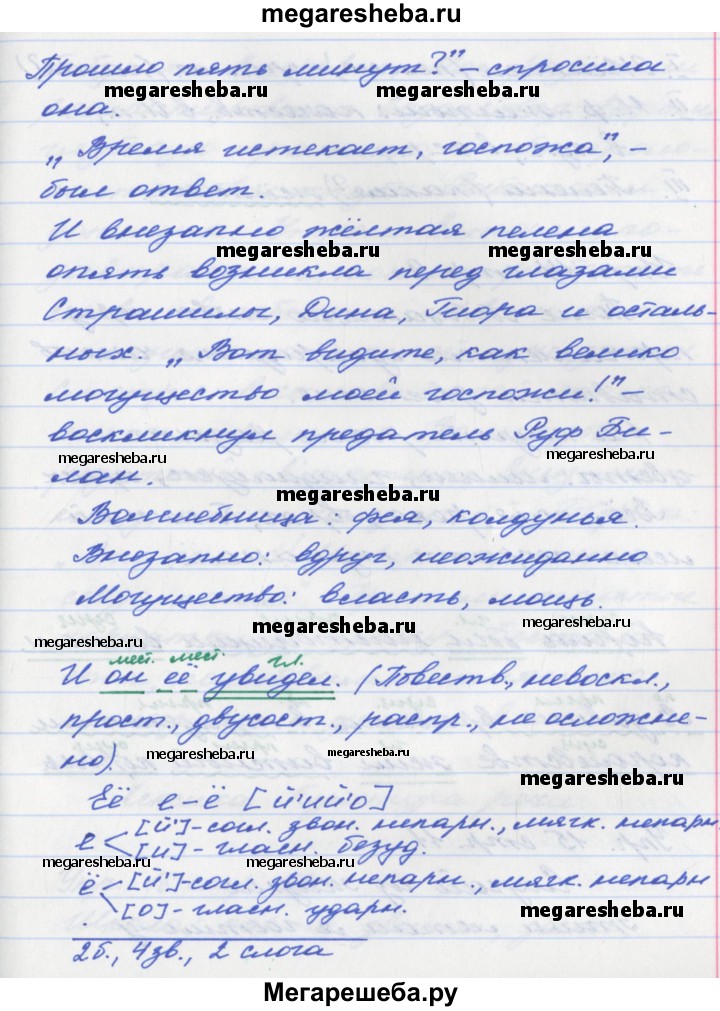 megaresheba.ru
Прошло пять минут?" – спросила
megaresheba.ru megaresheba.ru
она.
„Время истекает, госпожа", –
был ответ.
И внезапно жёлтая пелена
megaresheba.ru megaresheba.ru
опять возникла перед глазами
Страшилы, Дина, Гиора и осталь-
ных. „Вот видите, как велико
могущество моей госпожи!" –
воскликнул предатель Руф Би-
megaresheba.ru megaresheba.ru
лан.
megaresheba.ru
Волшебница: фея, колдунья.
Внезапно: вдруг, неожиданно
Могущество: власть, мощь.
megaresheba.ru
megaresheba.ru megaresheba.ru
мест. мест. гл.
И он её увидел. (Повеств., невоскл.,
прост., двусост., распр., не осложне-
но).
megaresheba.ru megaresheba.ru
megaresheba.ru
Её е-ё [й'ий'о]
е [й'] - согл. звон. непарн., мягк. непарн
[и] - гласн. безуд.
megaresheba.ru megaresheba.ru
ё [й'] - согл. звон. непарн., мягк. непарн
[о] - гласн. ударн.
megaresheba.ru
2 б., 4 зв., 2 слога
megaresheba.ru
Мегарешеба.ру